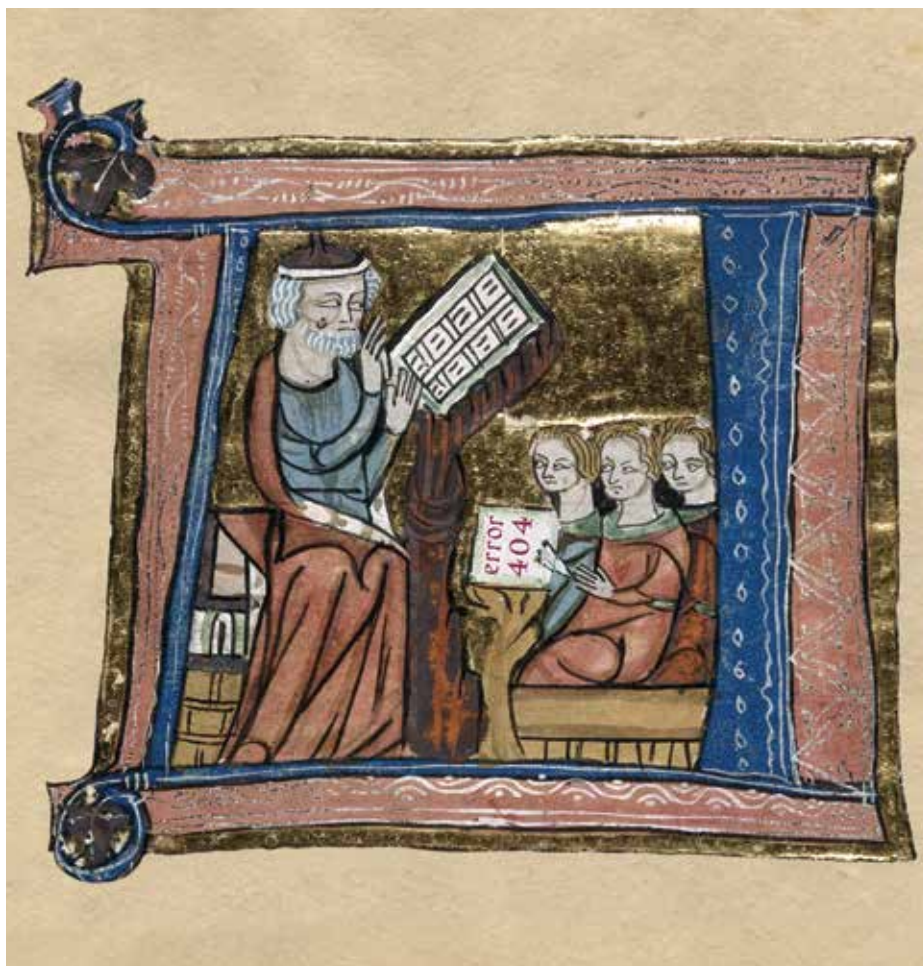 error
404